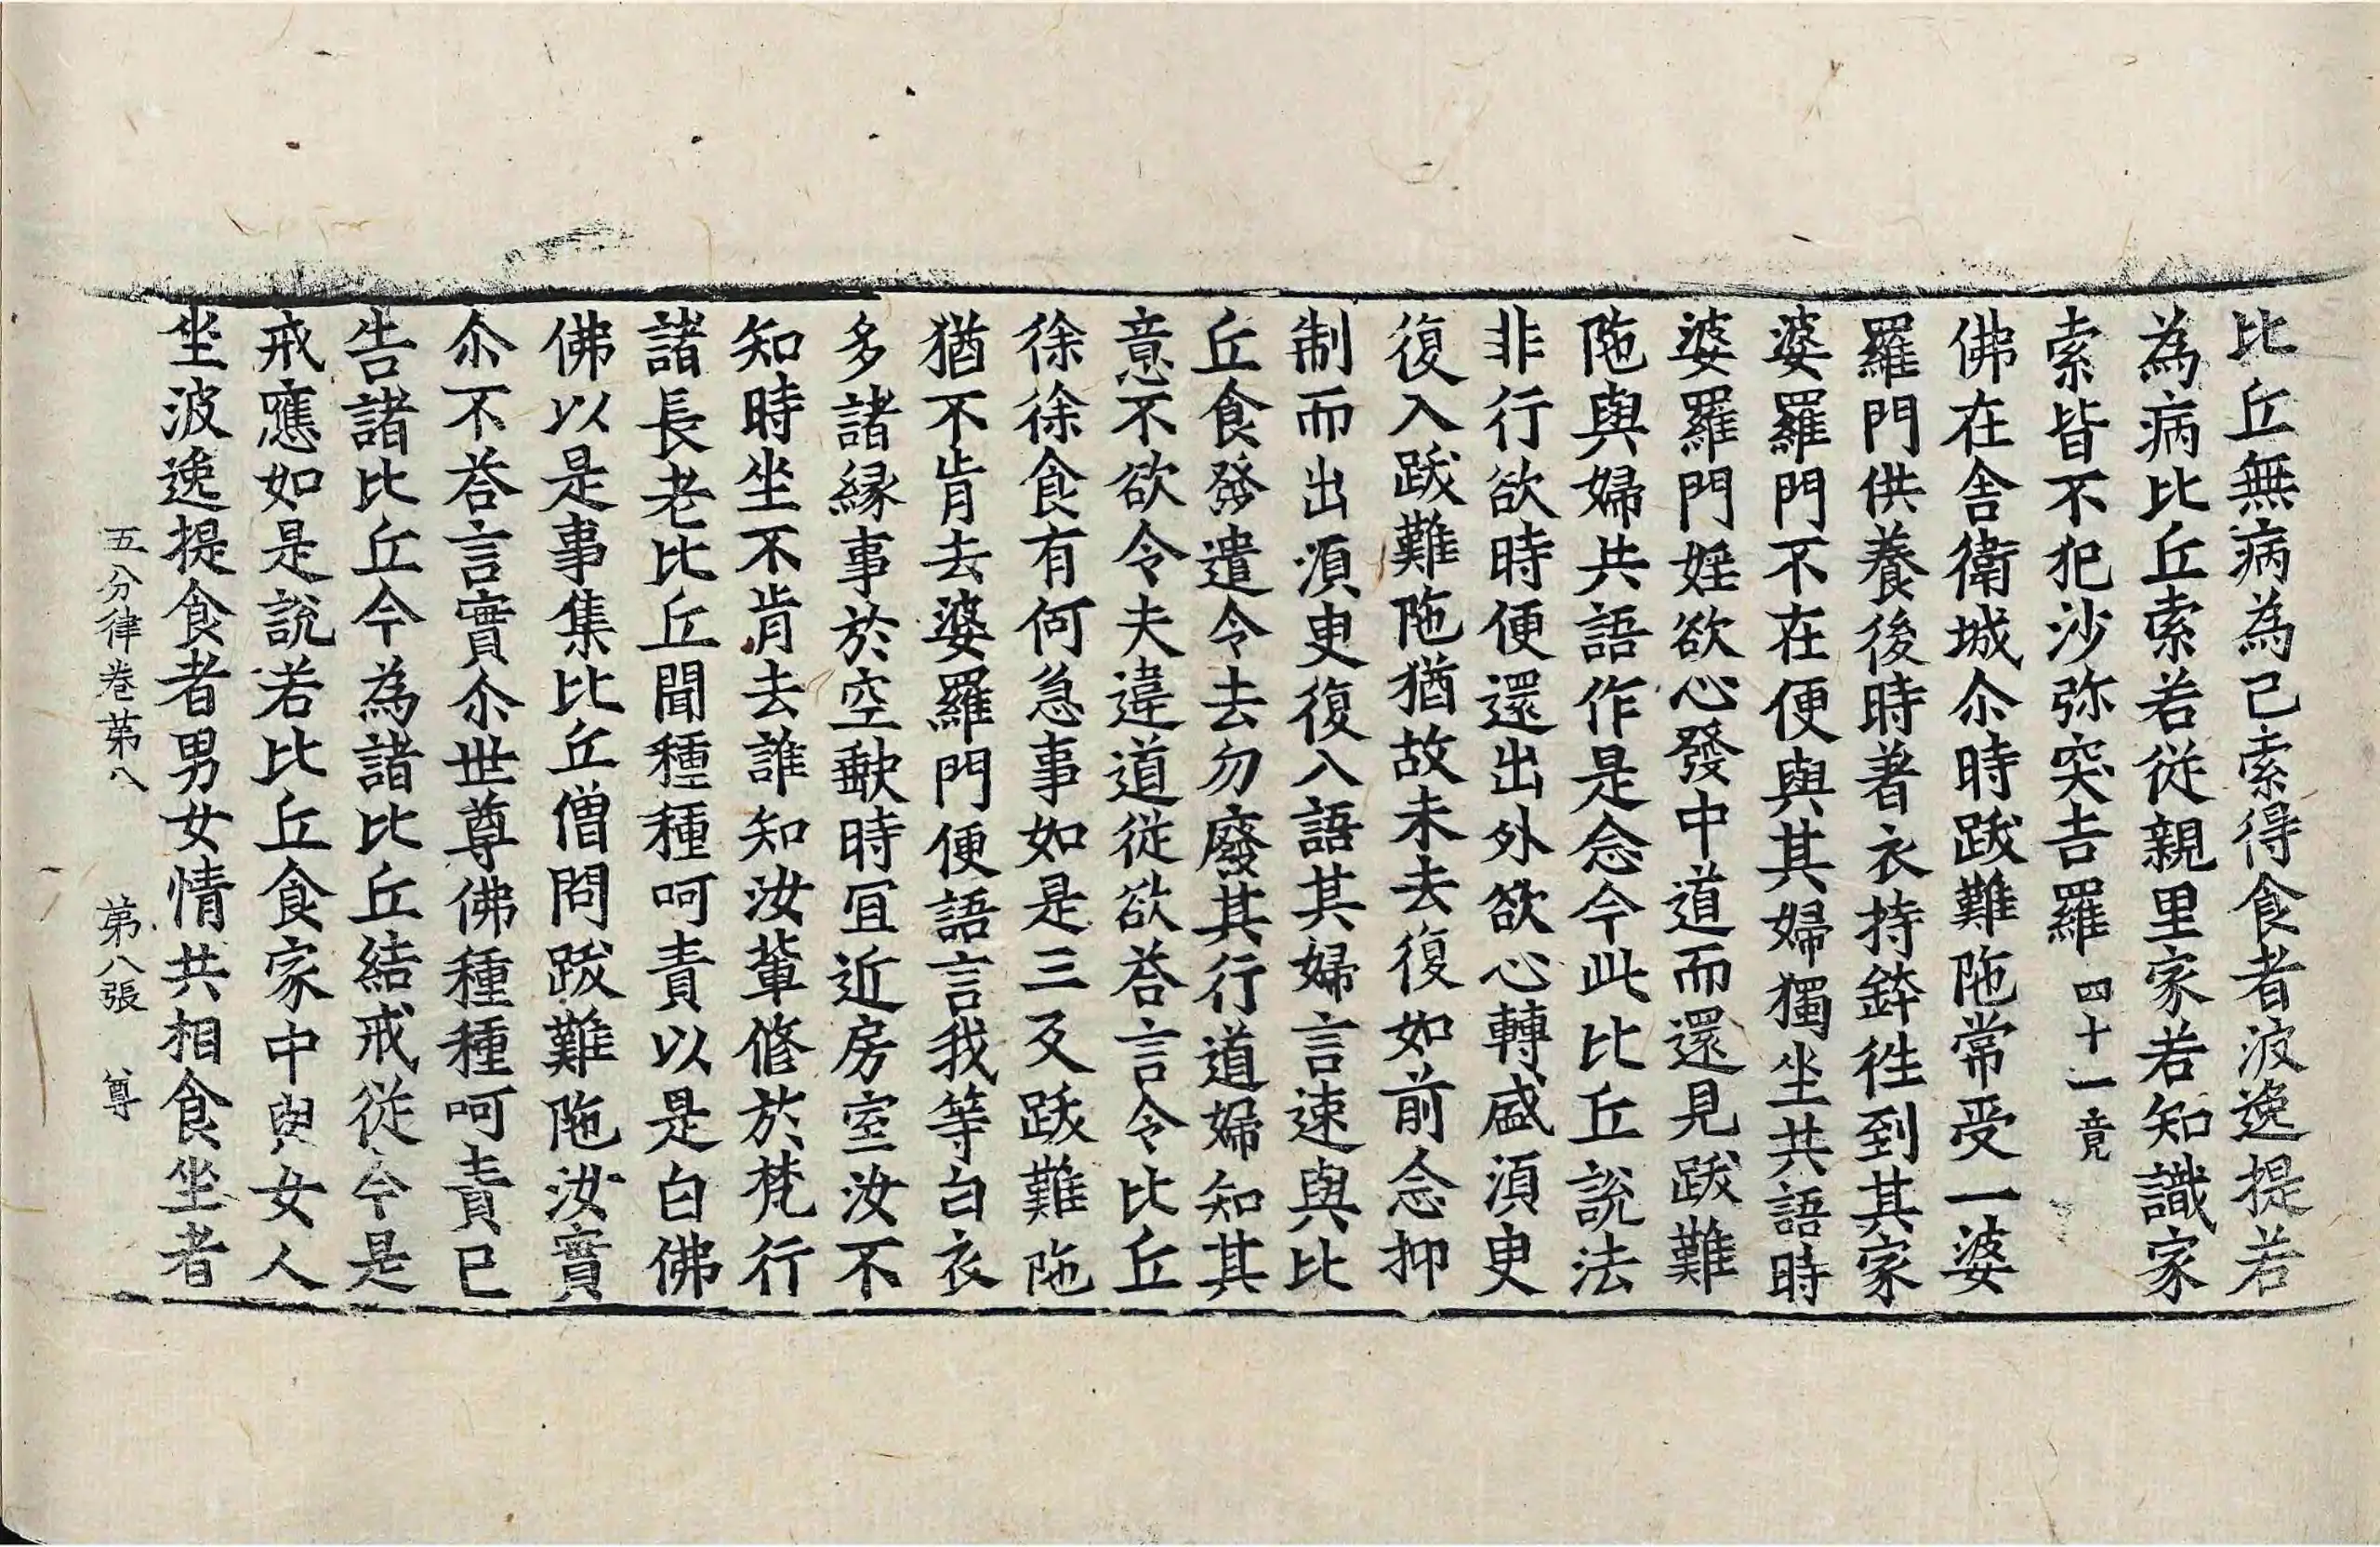 比丘無病為己索得食者波逸提若
為病比丘索若從親里家若知識家
索皆不犯沙弥突吉羅四十一竟
佛在舍衛城尒時跋難陁常受一婆
羅門供養後時著衣持鉢徃到其家
婆羅門不在便與其婦獨坐共語時
婆羅門婬欲心發中道而還見跋難
陁與婦共語作是念今此比丘說法
非行欲時便還出外欲心轉盛湏臾
復入跋難陁猶故未去復如前念抑
制而出湏臾復入語其婦言速與比
丘食發遣令去勿廢其行道婦知其
意不欲令夫違道從欲荅言令比丘
徐徐食有何急事如是三反跋難陁
猶不肯去婆羅門便語言我等白衣
多諸緣事於空歇時冝近房室汝不
知時坐不肯去誰知汝輩修於梵行
諸長老比丘聞種種呵責以是白佛
佛以是事集比丘僧問跋難陁汝實
尒不荅言實尒世尊佛種種呵責已
告諸比丘今為諸比丘結戒從今是
戒應如是說若比丘食家中與女人
坐波逸提食者男女情共相食坐者
五分律卷第八　第八張　尊